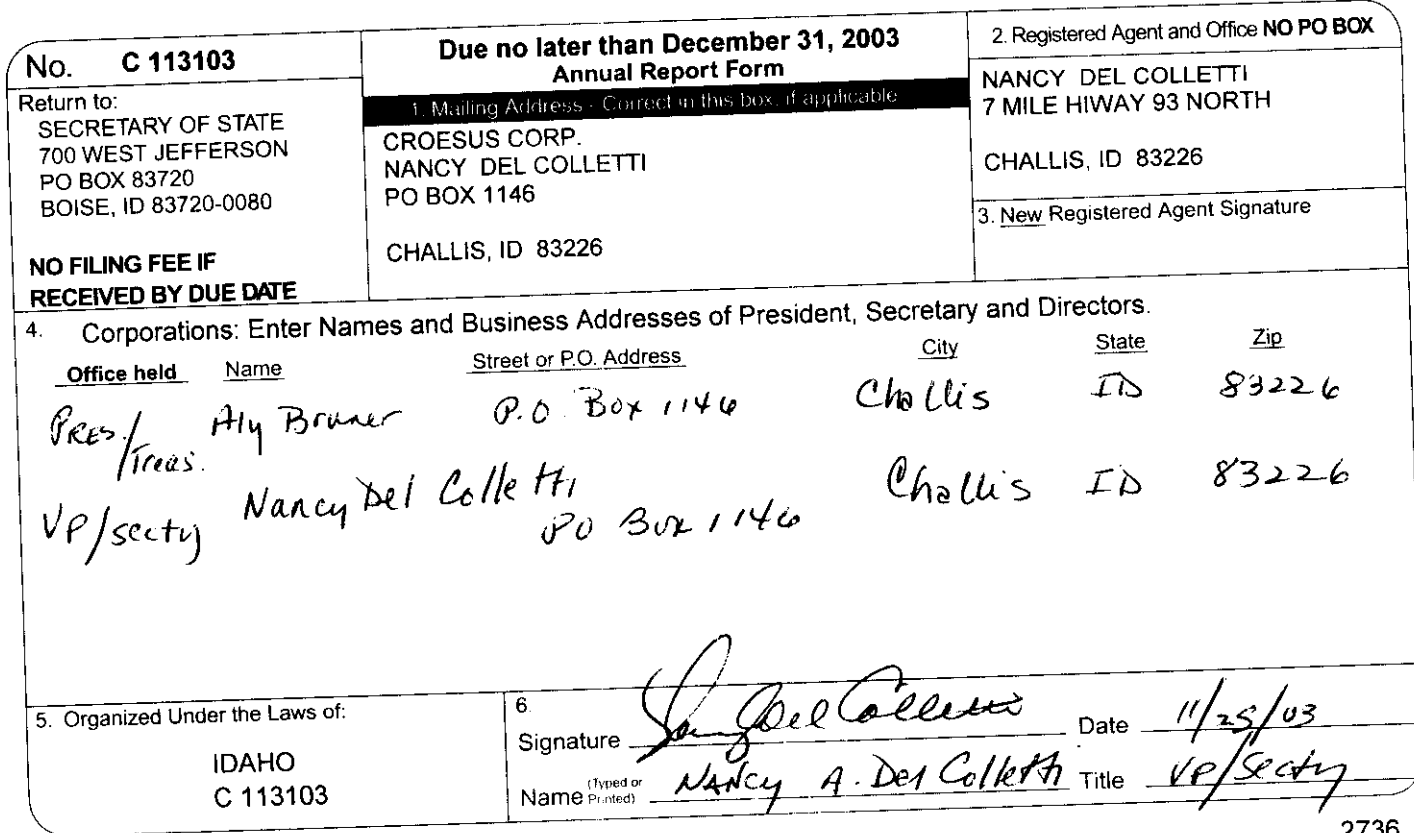 No. C 113103
Return to:
SECRETARY OF STATE
700 WEST JEFFERSON
PO BOX 83720
BOISE, ID 83720-0080
NO FILING FEE IF
RECEIVED BY DUE DATE
Due no later than December 31, 2003
Annual Report Form
1. Mailing Address - Correct in this box, if applicable
CROESUS CORP.
NANCY DEL COLLETTI
PO BOX 1146
CHALLIS, ID 83226
2. Registered Agent and Office NO PO BOX
NANCY DEL COLLETTI
7 MILE HIWAY 93 NORTH
CHALLIS, ID 83226
3. New Registered Agent Signature
4. Corporations: Enter Names and Business Addresses of President, Secretary and Directors.
Office held Name Street or P.O. Address City State Zip
PRES./Treas. Aly Bruner P.O. Box 1146 Challis ID 83226
VP/secty Nancy Del Colletti PO Box 1146 Challis ID 83226
5. Organized Under the Laws of:
IDAHO
C 113103
6.
Signature Nancy Del Colletti Date 11/25/03
Name (Typed or Printed) NANCY A. Del Colletti Title VP/Secty
2736